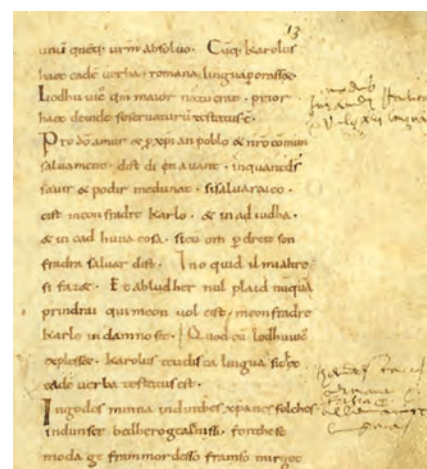 13
unū quēq; urm̄ absoluo. Cūq; karolus
haec eadē uerba. romana lingua perorasset.
Lodhuuic' qm̄ maior natu erat. prior
haec deinde se seruaturū testatus ē.
Pro dō amur & p xpian poblo & nr̄o cōmun
saluament. dist di en auant. inquantds̄
sauir & podir medunat. sisaluaraieo.
cist meon fradre karlo. & in ad iudha.
& in cad huna cosa. sicū om p dreit son
fradra saluar dist. Ino quid il mialtre
si faz&. Et abludher nul plaid nūquā
prindrai qui meon uol cist. meonfradre
karle in damno sit. Quod cū lodhuuic'
explesset. karolus teudisca lingua sic hec
eadē uerba testatus est.
Ingodes minna indinthes xpanes folches
indunser bedhero gealtnissi. fonthese
moda ge frammordesso framso mirgot